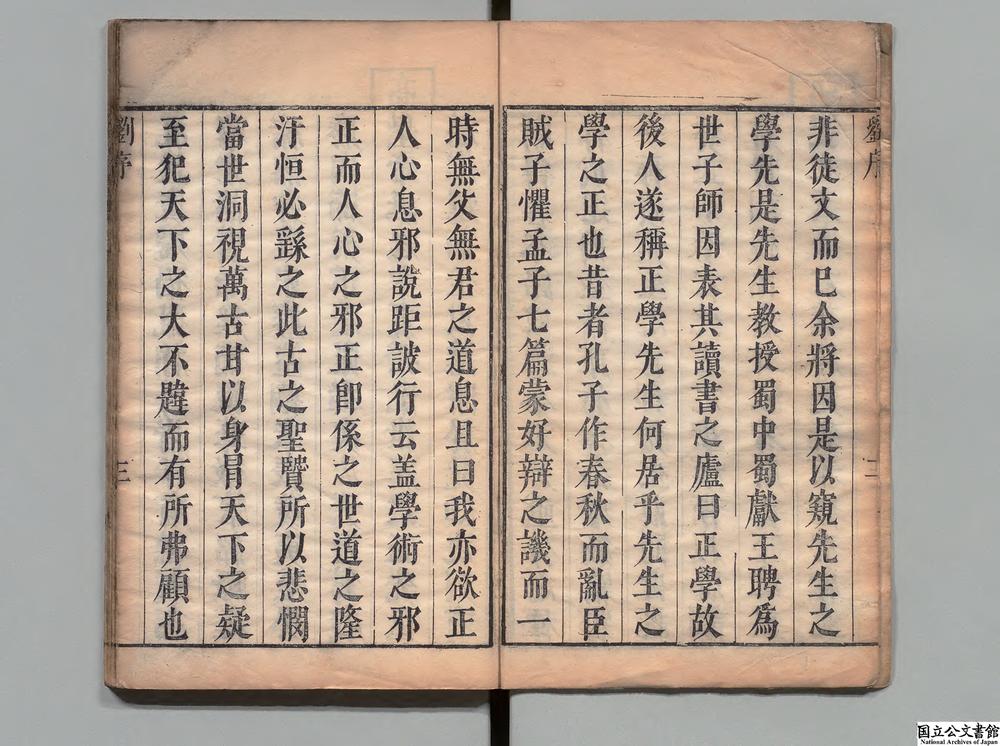 劉序
二
非徒文而已余將因是以窺先生之
學先是先生教授蜀中蜀獻王聘為
世子師因表其讀書之廬曰正學故
後人遂稱正學先生何居乎先生之
學之正也昔者孔子作春秋而亂臣
賊子懼孟子七篇蒙好辯之譏而一
時無父無君之道息且曰我亦欲正
人心息邪說距詖行云盖學術之邪
正而人心之邪正卽係之世道之隆
汙恒必繇之此古之聖賢所以悲憫
當世洞視萬古甘以身冒天下之疑
至犯天下之大不韙而有所弗顧也
劉序
三
国立公文書館
National Archives of Japan